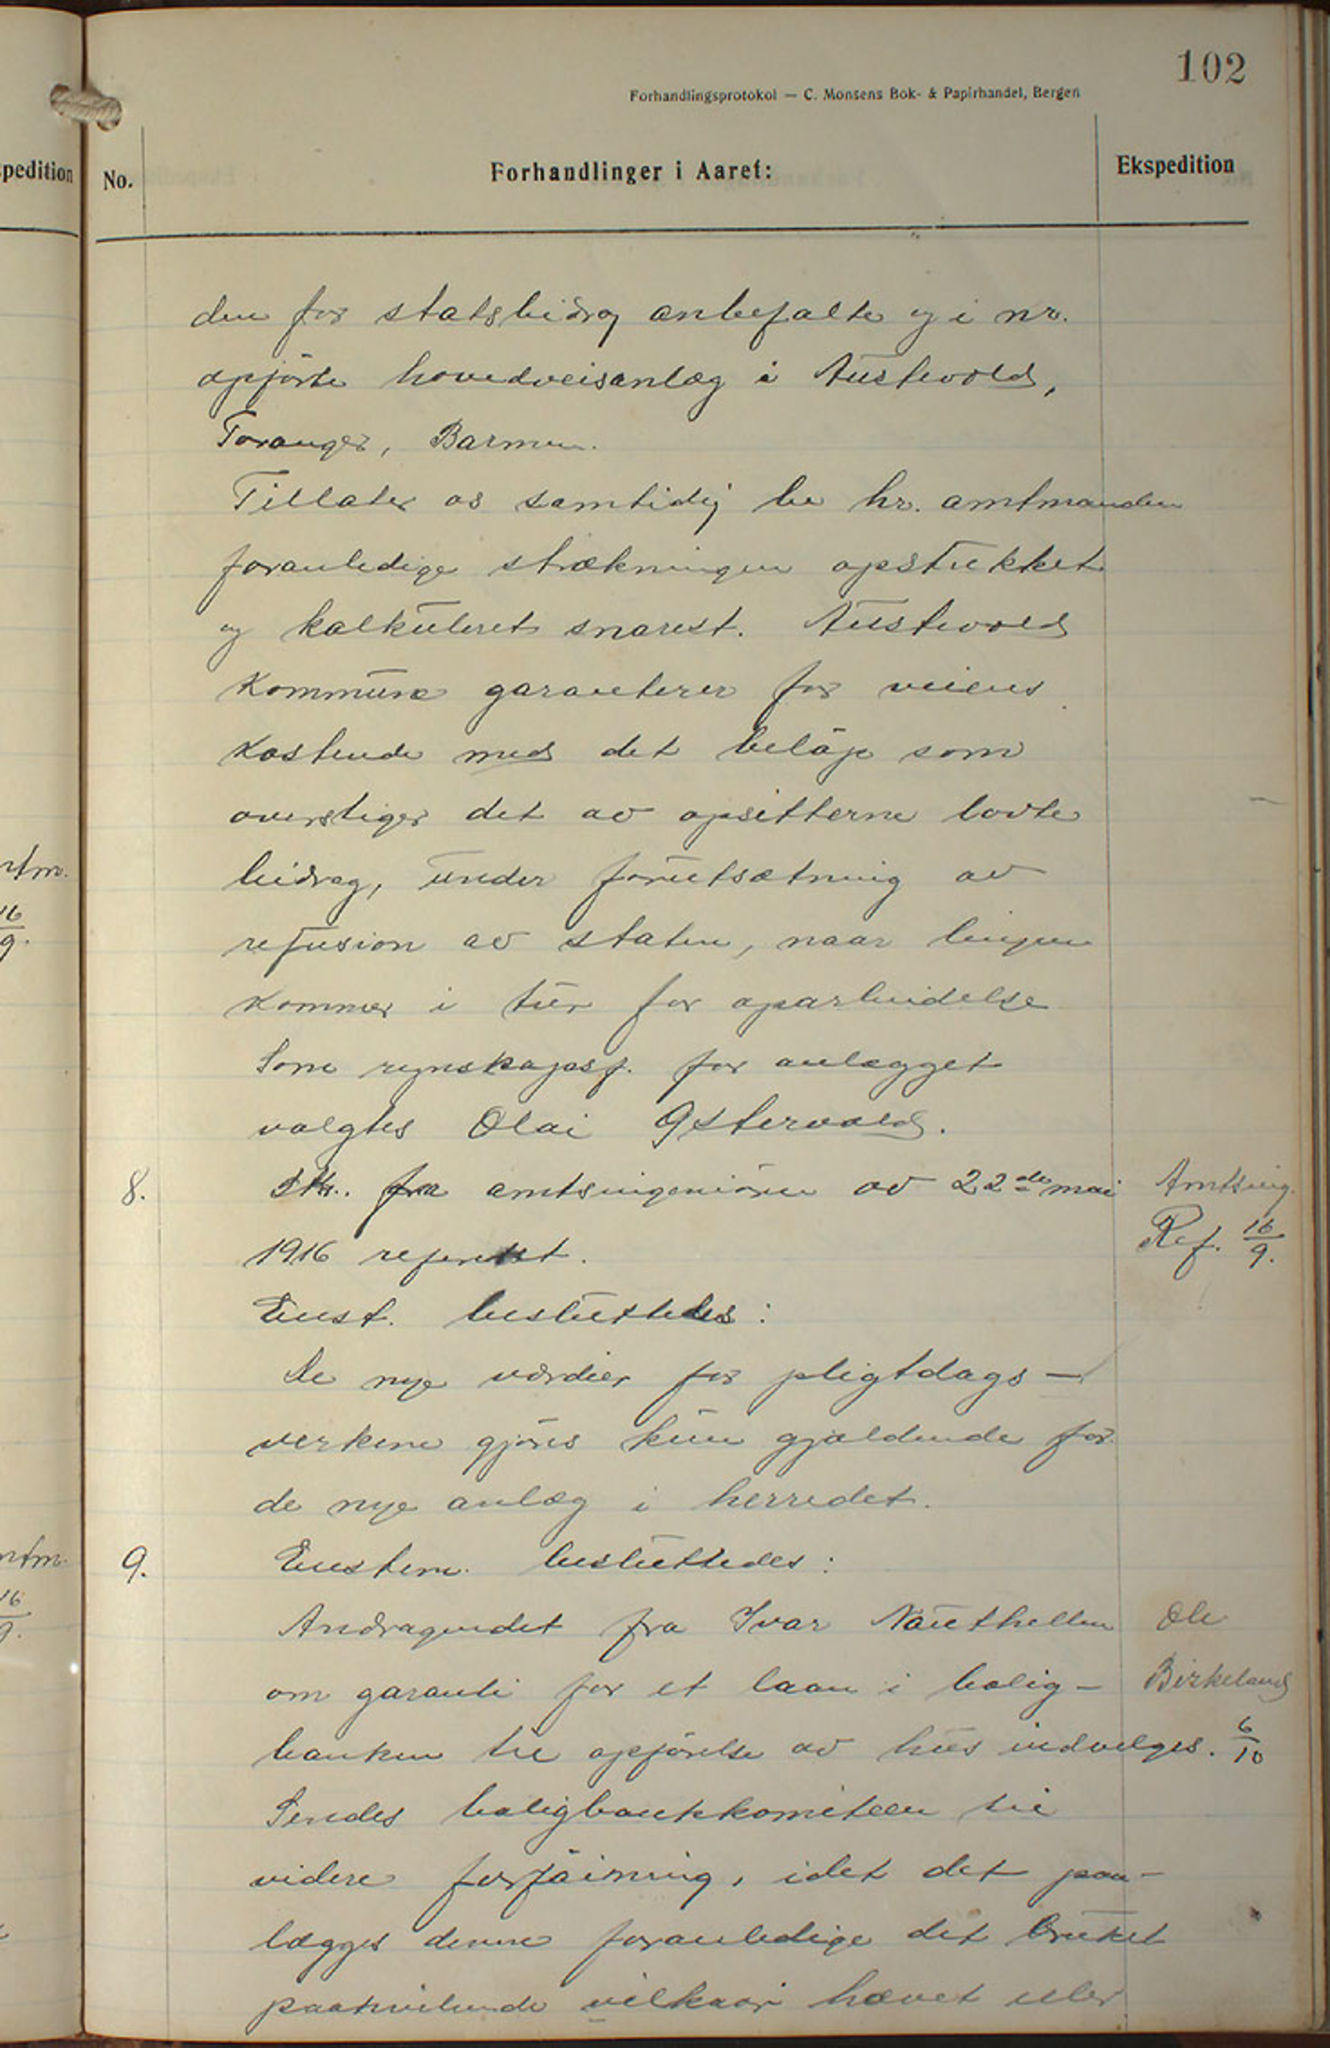 102
Forhandlingsprotokol — C. Monsens Bok- & Papirhandel, Bergen
pedition
No.
Forhandlinger i Aaret:
Ekspedition
den for statsbidrag anbefalte og i nr.
opførte hovedveisanlæg i Austevold,
Toranger, Barmen.
Tillater os samtidig be hr. amtmanden
foranledige strækningen opstukket
og kalkuleret snarest. Austevold
kommune garanterer for veiens
kostende med det beløp som
overstiger det av opsitterne lovte
bidrag, under forutsætning av
refusion av staten, naar linjen
kommer i tur for oparbeidelse
Som regnskapsf. for anlægget
valgtes Olai Østervold.
8.
Skr. fra amtsingeniøren av 22de mai
Amtsing.
1916 referert.
Ref. 16/9.
Enst. besluttedes:
De nye værdier for pligtdags-
verkene gjøres kun gjældende for
de nye anlæg i herredet.
9.
Enstem. besluttedes:
Andragendet fra Ivar Nauthellen
Ole
om garanti for et laan i bolig-
Birkeland
banken til opførelse av hus indvilges.
6/10
Sendes boligbankkomiteen til
videre forføining, idet det paa-
lægges denne foranledige det bruket
paahvilende vilkaar hævet eller
ntm.
16/9.
ntm.
16/9.